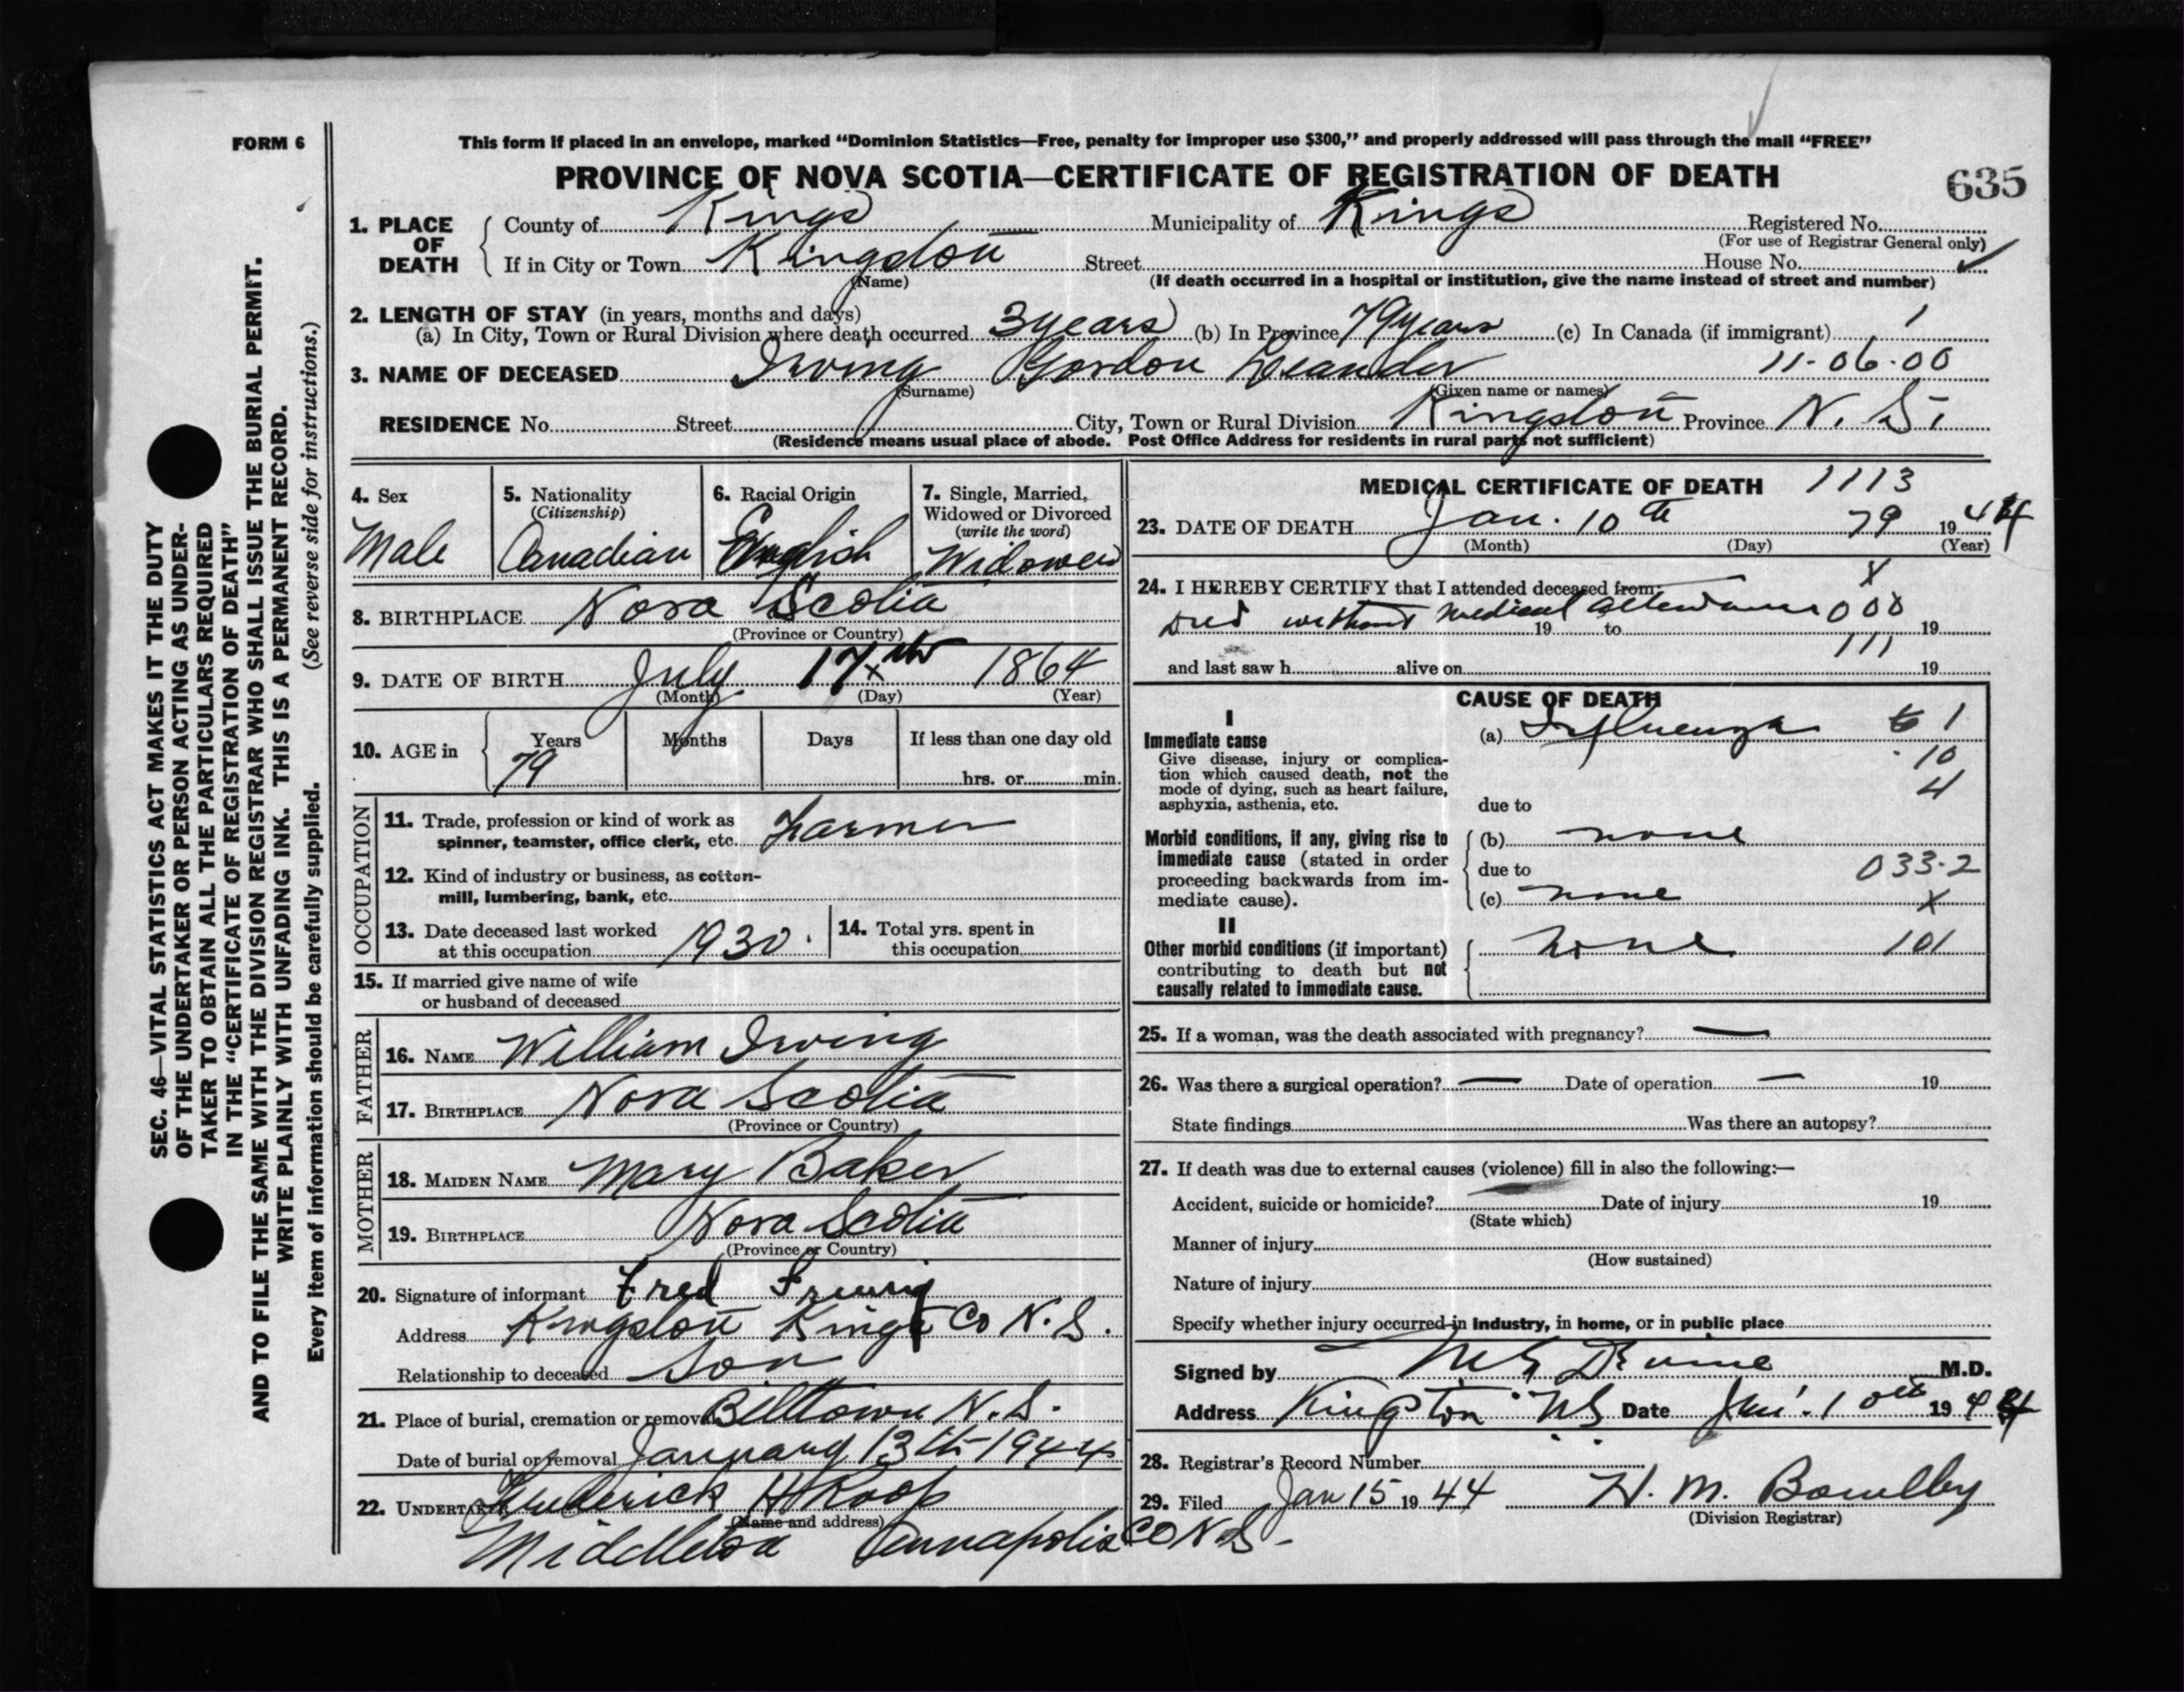 FORM 6
This form if placed in an envelope, marked "Dominion Statistics—Free, penalty for improper use $300," and properly addressed will pass through the mail "FREE"
PROVINCE OF NOVA SCOTIA—CERTIFICATE OF REGISTRATION OF DEATH
635
1. PLACE OF DEATH
County of Kings Municipality of Kings Registered No.
(For use of Registrar General only)
If in City or Town Kingston Street House No.
(Name) (If death occurred in a hospital or institution, give the name instead of street and number)
2. LENGTH OF STAY (in years, months and days)
(a) In City, Town or Rural Division where death occurred 3 years (b) In Province 79 years (c) In Canada (if immigrant) 1
3. NAME OF DECEASED Irving Gordon Leander 11-06-00
(Surname) (Given name or names)
RESIDENCE No. Street City, Town or Rural Division Kingston Province N. S.
(Residence means usual place of abode. Post Office Address for residents in rural parts not sufficient)
4. Sex
Male
5. Nationality
(Citizenship)
Canadian
6. Racial Origin
English
7. Single, Married,
Widowed or Divorced
(write the word)
Widowed
8. BIRTHPLACE Nova Scotia
(Province or Country)
9. DATE OF BIRTH July 17 1864
(Month) (Day) (Year)
10. AGE in
Years Months Days If less than one day old
79 hrs. or min.
OCCUPATION
11. Trade, profession or kind of work as
spinner, teamster, office clerk, etc. Farmer
12. Kind of industry or business, as cotton-
mill, lumbering, bank, etc.
13. Date deceased last worked
at this occupation 1930.
14. Total yrs. spent in
this occupation
15. If married give name of wife
or husband of deceased
FATHER
16. NAME William Irving
17. BIRTHPLACE Nova Scotia
(Province or Country)
MOTHER
18. MAIDEN NAME Mary Baker
19. BIRTHPLACE Nova Scotia
(Province or Country)
20. Signature of informant Fred Irving
Address Kingston Kings Co N.S.
Relationship to deceased Son
21. Place of burial, cremation or removal Billtown N.S.
Date of burial or removal January 13th 1944
22. UNDERTAKER Frederick H Roop
(Name and address)
Middleton Annapolis CO N.S-
MEDICAL CERTIFICATE OF DEATH 1113
23. DATE OF DEATH Jan. 10th 79 1944
(Month) (Day) (Year)
24. I HEREBY CERTIFY that I attended deceased from
X
Died without medical attendance 000
19 to 19
111
and last saw h alive on 19
CAUSE OF DEATH
I
Immediate cause
Give disease, injury or complica-
tion which caused death, not the
mode of dying, such as heart failure,
asphyxia, asthenia, etc.
(a) Influenza 6 1
10
4
due to
Morbid conditions, if any, giving rise to
immediate cause (stated in order
proceeding backwards from im-
mediate cause).
(b) none
due to 033-2
(c) none X
II
Other morbid conditions (if important)
contributing to death but not
causally related to immediate cause.
none 101
25. If a woman, was the death associated with pregnancy? —
26. Was there a surgical operation? — Date of operation — 19
State findings Was there an autopsy?
27. If death was due to external causes (violence) fill in also the following:—
Accident, suicide or homicide? Date of injury 19
(State which)
Manner of injury
(How sustained)
Nature of injury
Specify whether injury occurred in industry, in home, or in public place
Signed by M.D.
Address Kingston NS Date Jan. 10th 1944
28. Registrar's Record Number
29. Filed Jan 15 1944 H. M.
(Division Registrar)
SEC. 46—VITAL STATISTICS ACT MAKES IT THE DUTY
OF THE UNDERTAKER OR PERSON ACTING AS UNDER-
TAKER TO OBTAIN ALL THE PARTICULARS REQUIRED
IN THE "CERTIFICATE OF REGISTRATION OF DEATH"
AND TO FILE THE SAME WITH THE DIVISION REGISTRAR WHO SHALL ISSUE THE BURIAL PERMIT.
WRITE PLAINLY WITH UNFADING INK. THIS IS A PERMANENT RECORD.
Every item of information should be carefully supplied. (See reverse side for instructions.)